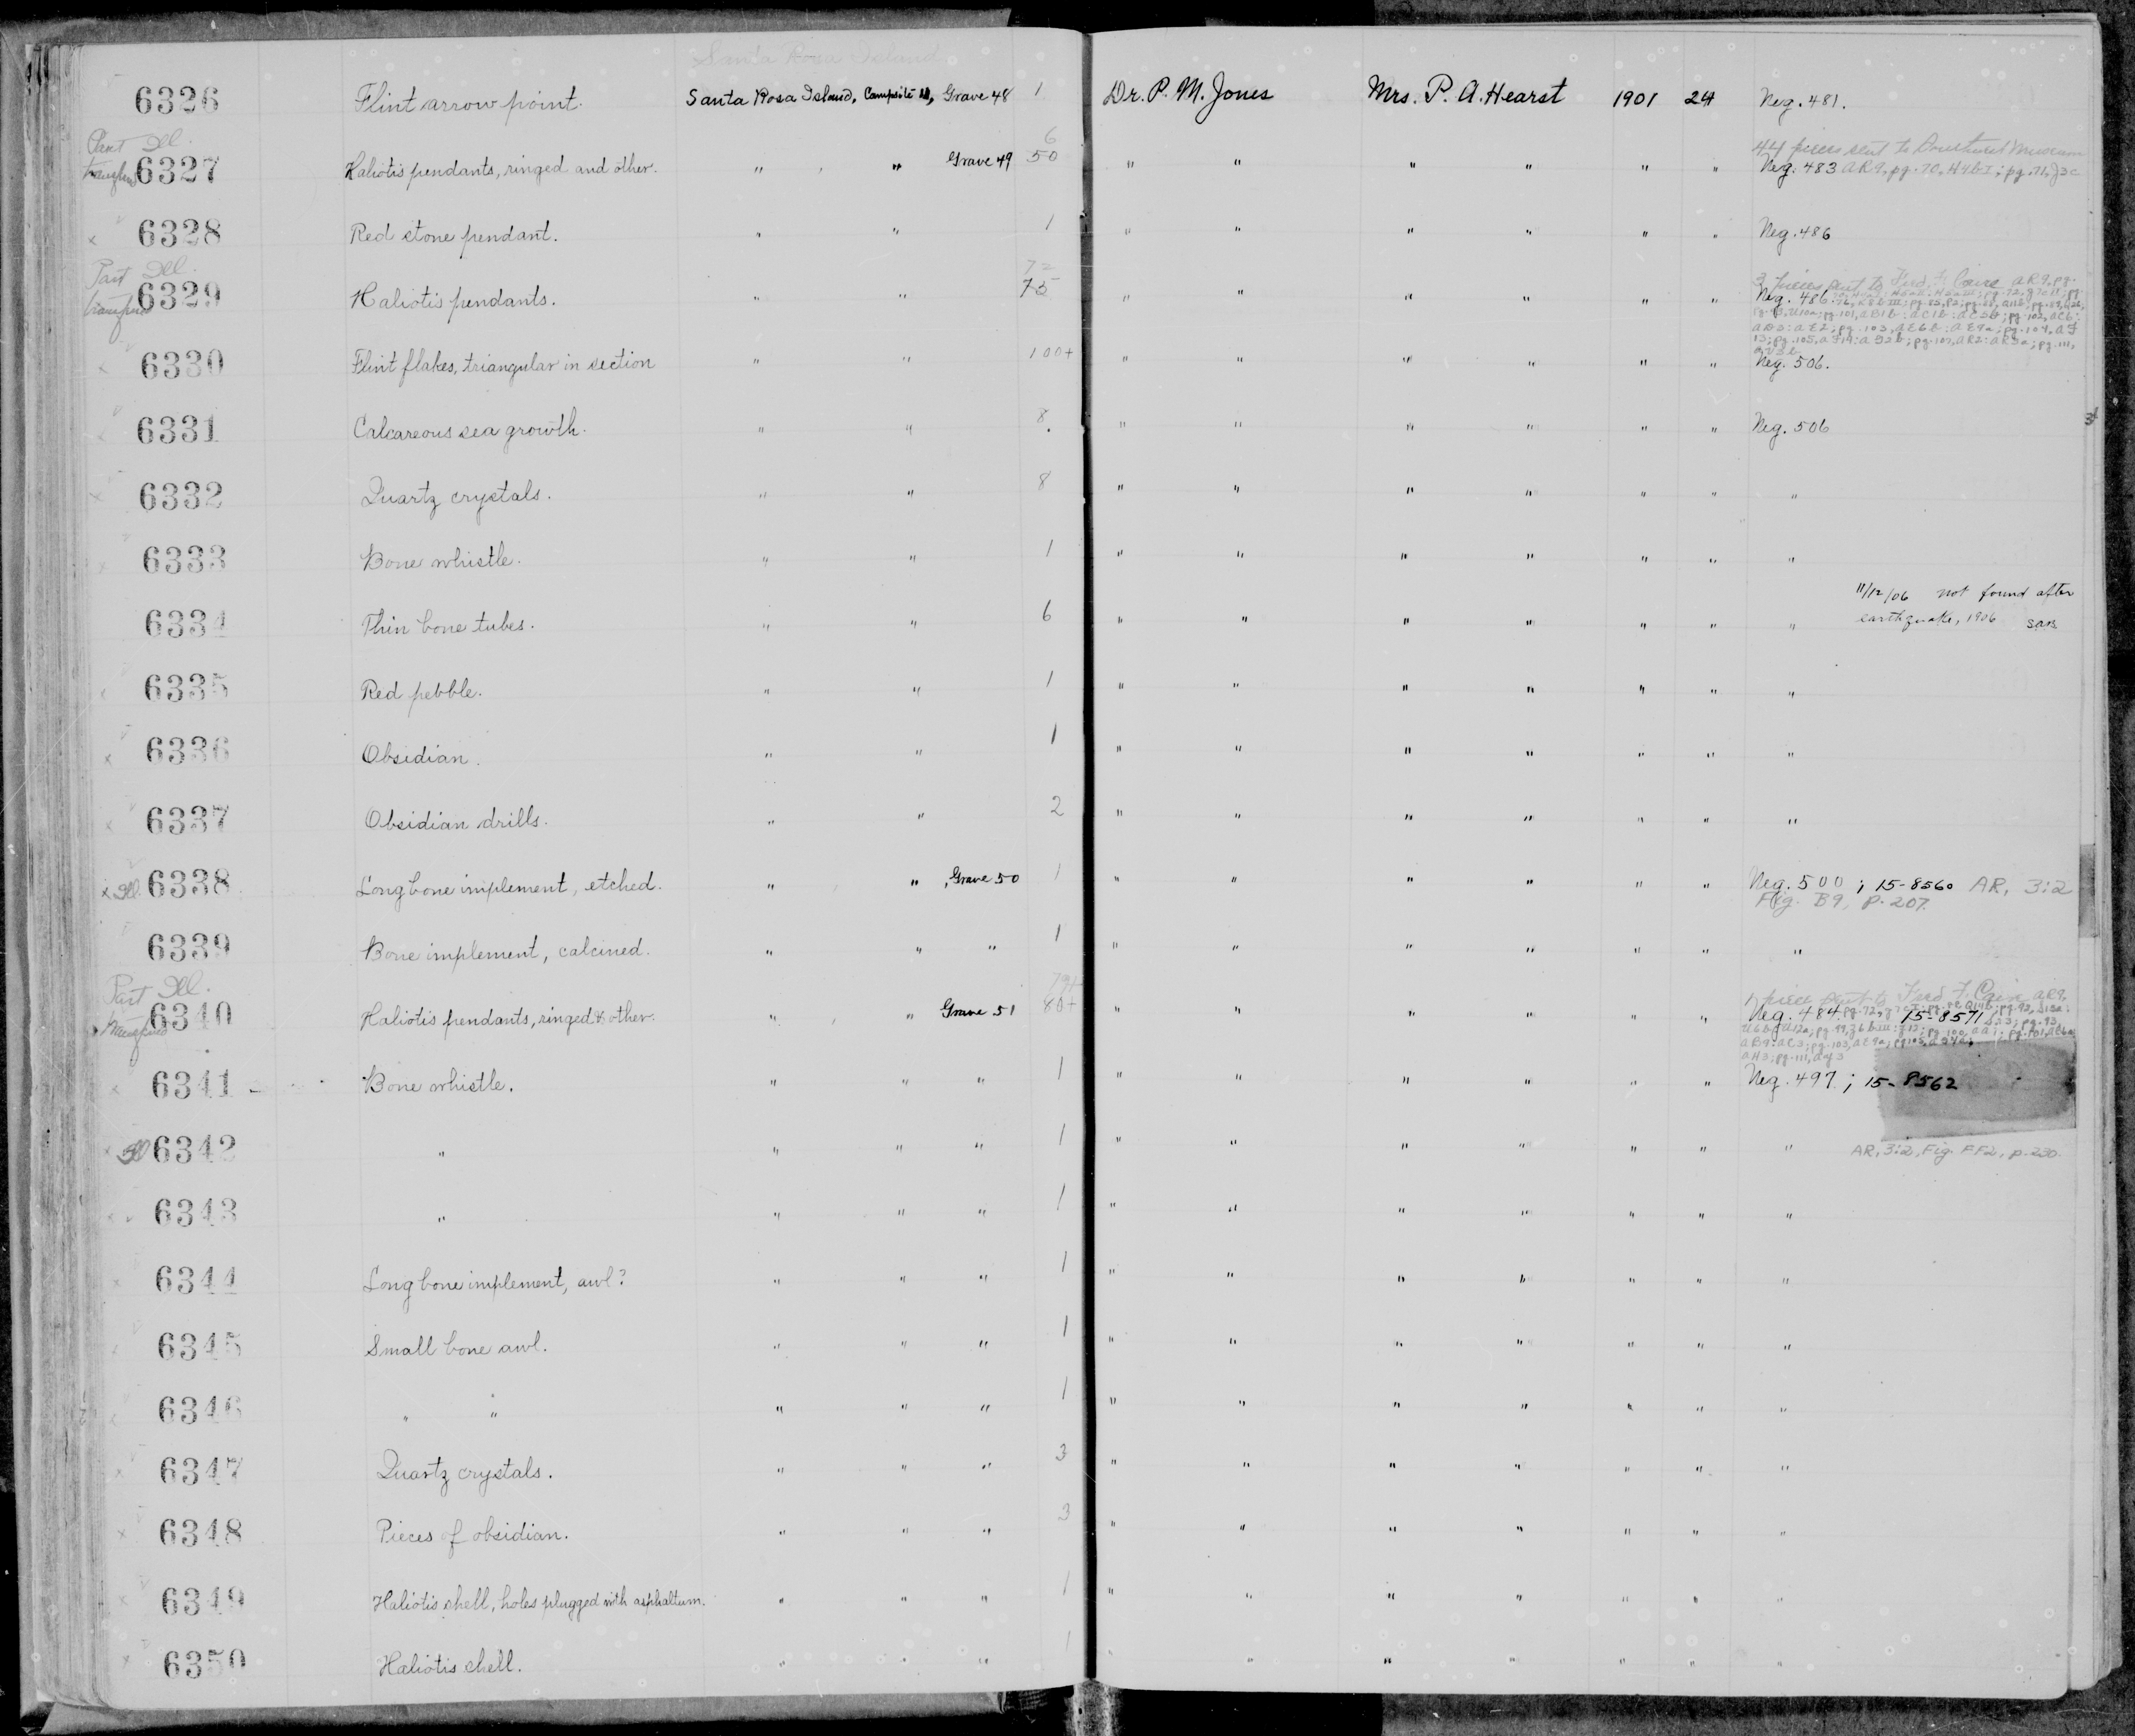 Santa Rosa Island
6326 Flint arrow point. Santa Rosa Island, Campsite Grave 48 1 Dr. P. M. Jones Mrs. P. A. Hearst 1901 24 Neg. 481.
Part Ill. 6 44 pieces sent to Museum
6327 Haliotis pendants, ringed and other. " " Grave 49 50 " " " " " " Neg. 483 AR9, pg. 70, H4bI; pg. 71, J3c
x 6328 Red stone pendant. " " 1 " " " " " " Neg. 486
Part Ill. 72 3 pieces sent to Fred F. AR9, pg.
6329 Haliotis pendants. " " 75 " " " " " " Neg. 486.
x 6330 Flint flakes, triangular in section " " 100+ " " " " " " Neg. 506.
6331 Calcareous sea growth. " " 8. " " " " " " Neg. 506
x 6332 Quartz crystals. " " 8 " " " " " " "
x 6333 Bone whistle. " " 1 " " " " " " "
11/12/06 not found after
6334 Thin bone tubes. " " 6 " " " " " " " earthquake, 1906 SAB
x 6335 Red pebble. " " 1 " " " " " " "
x 6336 Obsidian. " " 1 " " " " " " "
x 6337 Obsidian drills. " " 2 " " " " " " "
x Ill. 6338 Long bone implement, etched. " " , Grave 50 1 " " " " " " Neg. 500 ; 15-8560 AR, 3:2
Fig. B9, p. 207.
6339 Bone implement, calcined. " " " 1 " " " " " " "
Part Ill. 79+ 1 piece sent to Fred F. AR9,
6340 Haliotis pendants, ringed & other. " " Grave 51 80+ " " " " " " Neg. 484 15-8571
x 6341 - Bone whistle. " " " 1 " " " " " " Neg. 497 ; 15-8562
x Ill 6342 " " " " 1 " " " " " " " AR, 3:2, Fig. FF2, p. 230.
x 6343 " " " " 1 " " " " " " "
x 6344 Long bone implement, awl? " " " 1 " " " " " " "
6345 Small bone awl. " " " 1 " " " " " " "
x 6346 " " " " " 1 " " " " " " "
x 6347 Quartz crystals. " " " 3 " " " " " " "
x 6348 Pieces of obsidian. " " " 3 " " " " " " "
x 6349 Haliotis shell, holes plugged with asphaltum. " " " 1 " " " " " " "
x 6350 Haliotis shell. " " " 1 " " " " " " "